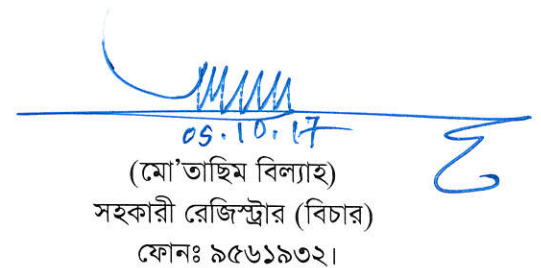 05.10.17
(মো'তাছিম বিল্যাহ)
সহকারী রেজিস্ট্রার (বিচার)
ফোনঃ ৯৫৬১৯৩২।